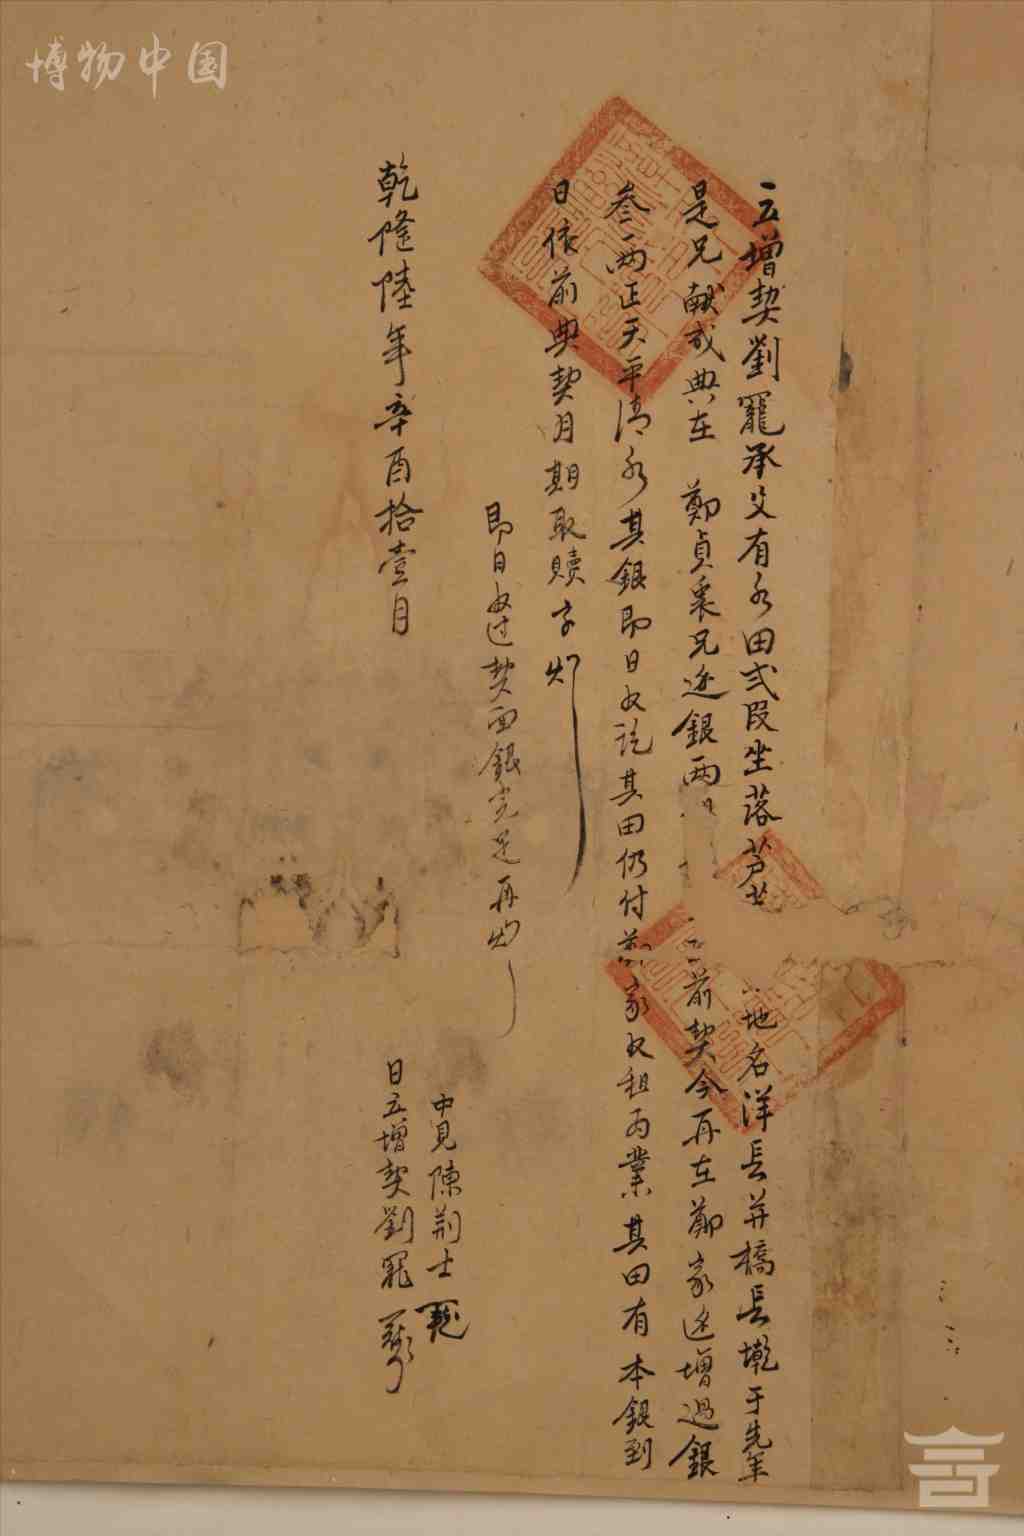 博物中国
立增契劉寵承父有水田弍段坐落芦 地名洋長并橋長墘于先年
是兄献成典在鄭貞寀兄边銀両 前契今再在鄭家边增過銀
叁両正天平清水其銀即日收訖其田仍付鄭家收租为業其田有本銀到
日依前典契月期取贖字炤
即日收过契面銀完足再炤
乾隆陸年辛酉拾壹月
中見陳荊士
日立增契劉寵